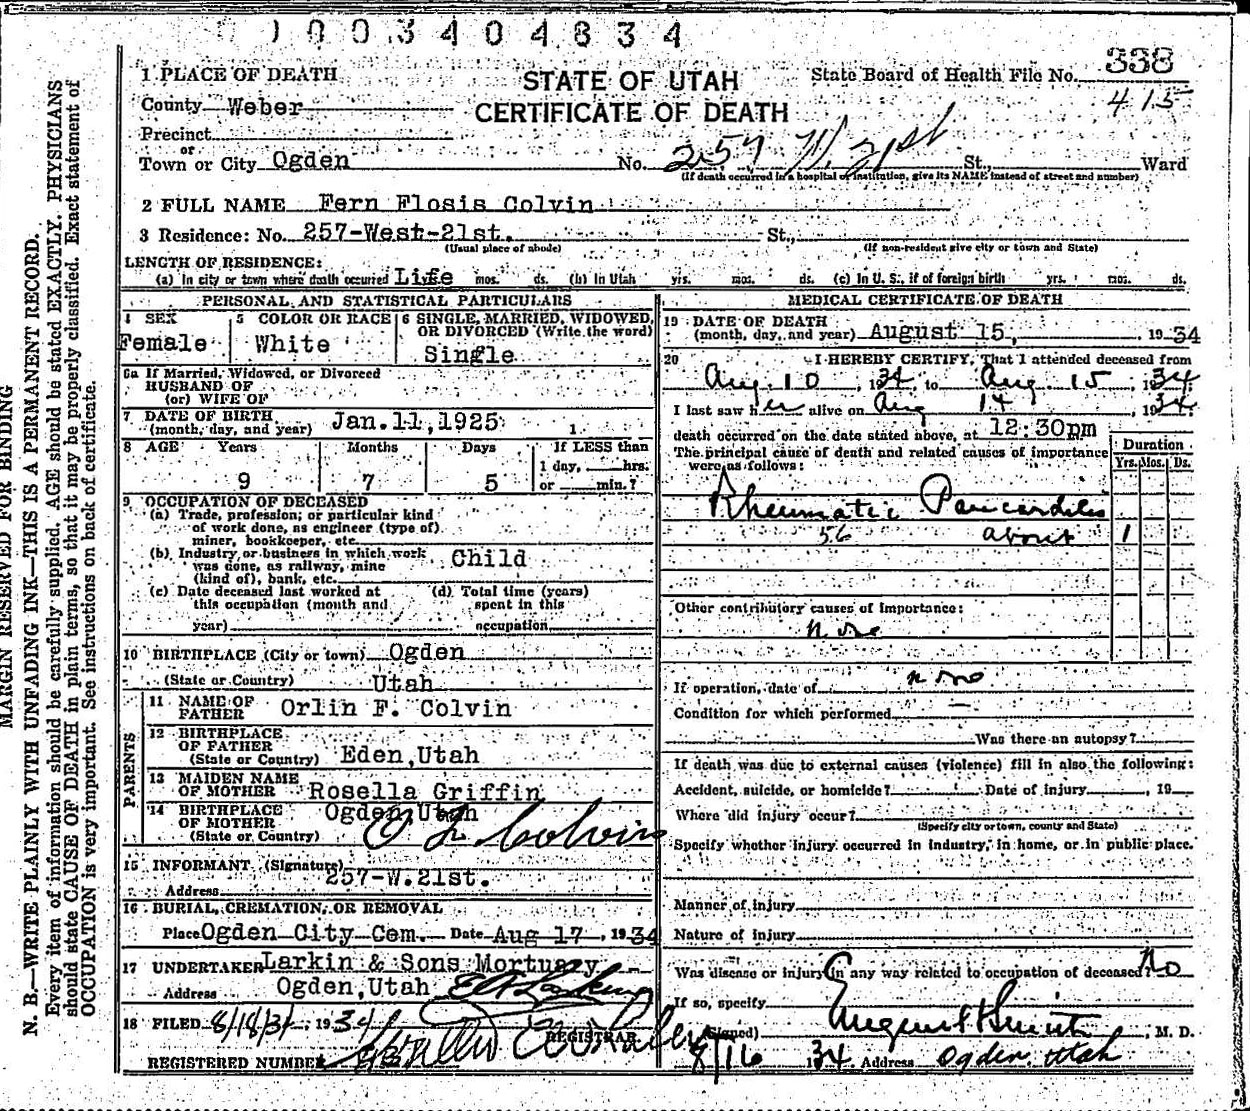 1003404834
1 PLACE OF DEATH
STATE OF UTAH
CERTIFICATE OF DEATH
State Board of Health File No. 338
415
County Weber
Precinct
or
Town or City Ogden No. 257 W. 21st St., Ward
(If death occurred in a hospital or institution, give its NAME instead of street and number)
2 FULL NAME Fern Flosis Colvin
3 Residence: No. 257-West-21st. St.,
(Usual place of abode) (If non-resident give city or town and State)
LENGTH OF RESIDENCE:
(a) In city or town where death occurred Life mos. ds. (b) In Utah yrs. mos. ds. (c) In U. S., if of foreign birth yrs. mos. ds.
PERSONAL AND STATISTICAL PARTICULARS
4 SEX
Female
5 COLOR OR RACE
White
6 SINGLE, MARRIED, WIDOWED,
OR DIVORCED (Write the word)
Single
6a If Married, Widowed, or Divorced
HUSBAND OF
(or) WIFE OF
7 DATE OF BIRTH
(month, day, and year) Jan.11,1925
8 AGE Years Months Days If LESS than
1 day, hrs.
or min.?
9 7 5
9 OCCUPATION OF DECEASED
(a) Trade, profession, or particular kind
of work done, as engineer (type of)
miner, bookkeeper, etc.
(b) Industry or business in which work
was done, as railway, mine
(kind of), bank, etc. Child
(c) Date deceased last worked at
this occupation (month and
year)
(d) Total time (years)
spent in this
occupation
10 BIRTHPLACE (City or town) Ogden
(State or Country) Utah
PARENTS
11 NAME OF
FATHER Orlin F. Colvin
12 BIRTHPLACE
OF FATHER
(State or Country) Eden,Utah
13 MAIDEN NAME
OF MOTHER Rosella Griffin
14 BIRTHPLACE
OF MOTHER
(State or Country) Ogden,Utah
15 INFORMANT (Signature) O F Colvin
Address 257-W.21st.
16 BURIAL, CREMATION, OR REMOVAL
Place Ogden City Cem. Date Aug 17, 1934
17 UNDERTAKER Larkin & Sons Mortuary
Address Ogden,Utah
18 FILED 8/18/34, 1934
REGISTRAR
REGISTERED NUMBER
MEDICAL CERTIFICATE OF DEATH
19 DATE OF DEATH
(month, day, and year) August 15, 1934
20 I HEREBY CERTIFY, That I attended deceased from
Aug 10, 1934, to Aug 15, 1934
I last saw her alive on Aug 14, 1934
death occurred on the date stated above, at 12:30pm
The principal cause of death and related causes of importance
were as follows:
Duration
Yrs. Mos. Ds.
Rheumatic Pancarditis
56 about 1
Other contributory causes of importance:
none
If operation, date of none
Condition for which performed
Was there an autopsy?
If death was due to external causes (violence) fill in also the following:
Accident, suicide, or homicide? Date of injury, 19
Where did injury occur?
(Specify city or town, county and State)
Specify whether injury occurred in industry, in home, or in public place.
Manner of injury
Nature of injury
Was disease or injury in any way related to occupation of deceased? No
If so, specify
(Signed) M. D.
8/16 1934. Address Ogden, Utah
MARGIN RESERVED FOR BINDING
N. B.—WRITE PLAINLY WITH UNFADING INK—THIS IS A PERMANENT RECORD.
Every item of information should be carefully supplied. AGE should be stated EXACTLY. PHYSICIANS
should state CAUSE OF DEATH in plain terms, so that it may be properly classified. Exact statement of
OCCUPATION is very important. See instructions on back of certificate.